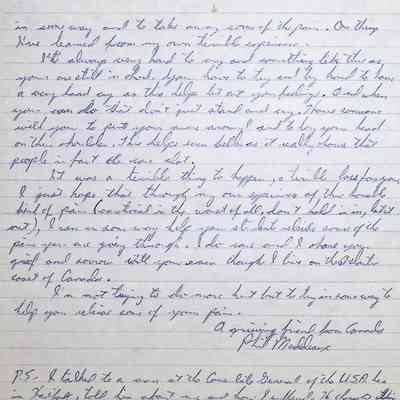 in some way and to take away some of the pain. One thing
I've learned from my own terrible experience.
It's always very hard to say and something like this as
yours are still in shock. you have to try and try hard to have
a very hard cry as this helps let out your feelings. And when
you can do this don't just stand and cry. Have someone
with you to put your arms around and to lay your head
on their shoulder. This helps even better as it really shows that
people in fact do care alot.
It was a terrible thing to happen, a terrible loss for you
I just hope that through my own experience of this horrible
kind of pain (emotional is the worst of all, don't hold in, let it
out), I can in some way help you to release some of the
pain you are going through. I do care and I share your
grief and sorrow with you even though I live on the
coast of Canada.
I'm not trying to do more hurt but to try in some way to
help you relieve some of your pain.
A grieving friend from Canada
Phil
P.S. I talked to a man at the Consulate General of the U.S.A. here
in Halifax, told him about me and how I